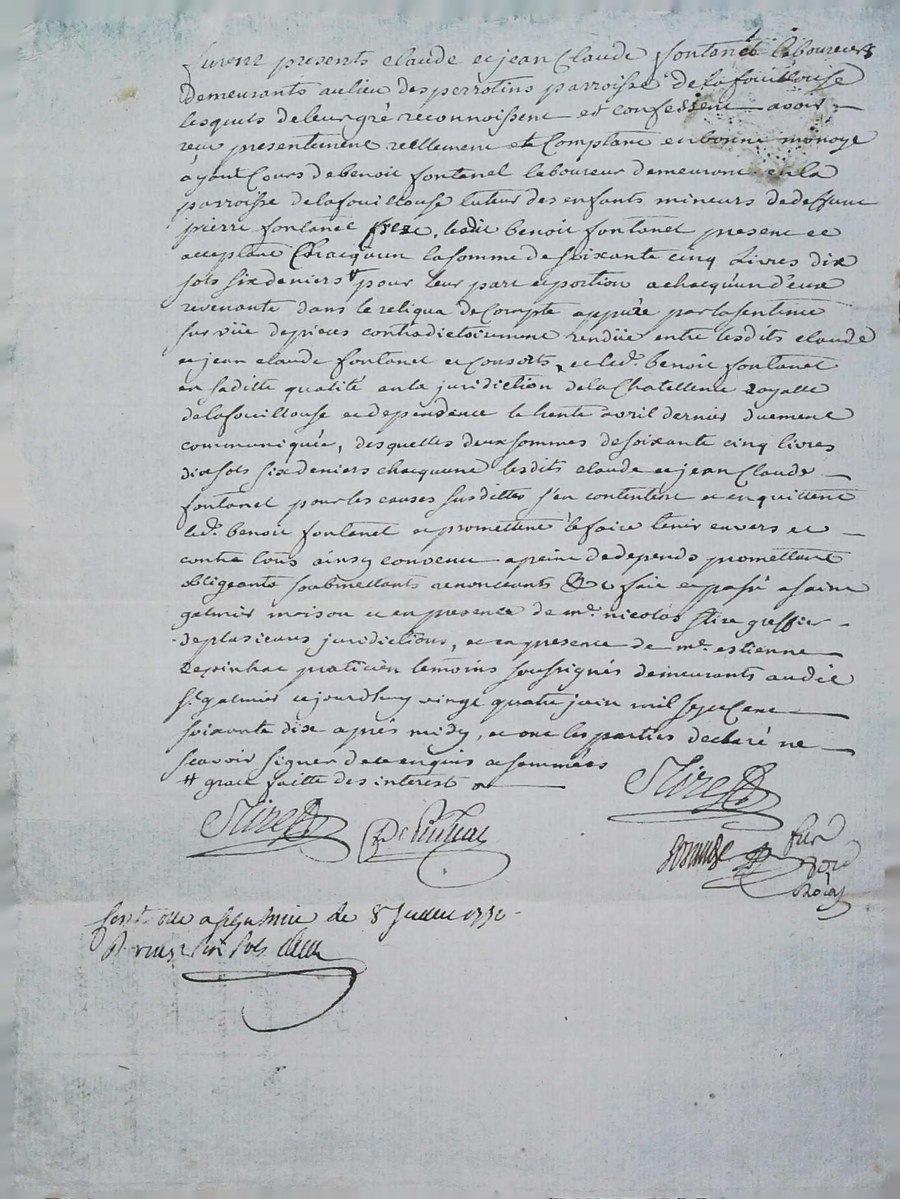 furent presents claude et jean Claude fontanet laboureurs
demeurants au lieu des perrotins parroisse de la fouillouse
lesquels de leur gré reconnoissent et confessent avoir
reçu presentement reellement et Comptant en bonne monoye
ayant Cours de benoit fontanet laboureur demeurant en la
parroisse de lafouillouse tuteur des enfants mineurs de deffunt
pierre fontanet frere, ledit benoit fontanet present et
acceptant Chacquun la somme de soixante cinq Livres dix
sols six deniers # pour leur part et portion a chacquun d'eux
revenante dans le reliqua de Compte appuré par la sentence
sur vüe de pieces contradictoirement rendüe entre lesdits claude
et jean claude fontanet et Consorts, et led. benoit fontanet
en sa ditte qualité en la juridiction de la Chatellenie Royalle
de lafouillouse et dependence le trente avril dernier duement
communiquée, desquelles deux sommes de soixante cinq livres
dix sols six deniers chacquune lesdits claude et jean Claude
fontanet pour les causes susdittes s'en contentent et en quittent
led. benoit fontanet et promettent le faire tenir envers et
contre tous ainsy convenu a peine de depends promettant
obligeants soubmettants renonceants &c fait et passé a saint
galmier maison et en presence de me. nicolas Stire greffier
de plusieurs juridictions, et en presence de me. estienne
praticien temoins soussignés demeurants audit
st. galmier ce jourdhuy vingt quatre juin mil sept Cent
soixante dix après midy, et ont les parties declaré ne
scavoir signer de ce enquis et sommées
# grace faitte des interest
Stire
Stire
de 8 juillet 1770
sols